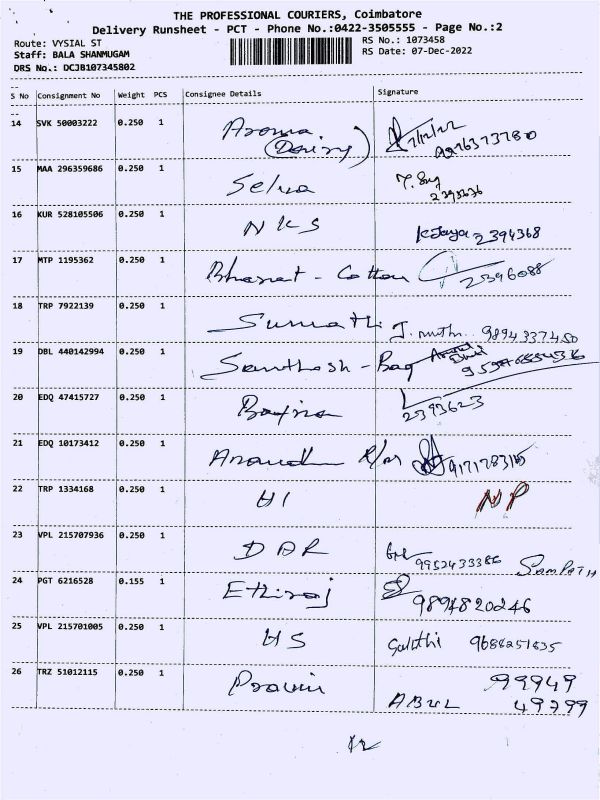 THE PROFESSIONAL COURIERS, Coimbatore
Delivery Runsheet - PCT - Phone No.:0422-3505555 - Page No.:2
Route: VYSIAL ST
RS No.: 1073458
Staff: BALA SHANMUGAM
RS Date: 07-Dec-2022
DRS No.: DCJB107345802
S No Consignment No Weight PCS Consignee Details Signature
14 SVK 50003222 0.250 1 Aroma
15 MAA 296359686 0.250 1 Selva
2395636
16 KUR 528105506 0.250 1 NKS KJaya 2394368
17 MTP 1195362 0.250 1 Bharat - Cotton 2396088
18 TRP 7922139 0.250 1 Sumathi 9894337450
19 DBL 440142994 0.250 1 Santhosh - Bag
20 EDQ 47415727 0.250 1 2393623
21 EDQ 10173412 0.250 1 Anandh
22 TRP 1334168 0.250 1 HI NP
23 VPL 215707936 0.250 1 DAR 9952433386 SAMPATH
24 PGT 6216528 0.155 1 Ethiraj 9894820246
25 VPL 215701005 0.250 1 HS 9688251835
26 TRZ 51012115 0.250 1 Pravin 99949
ABUL 49799